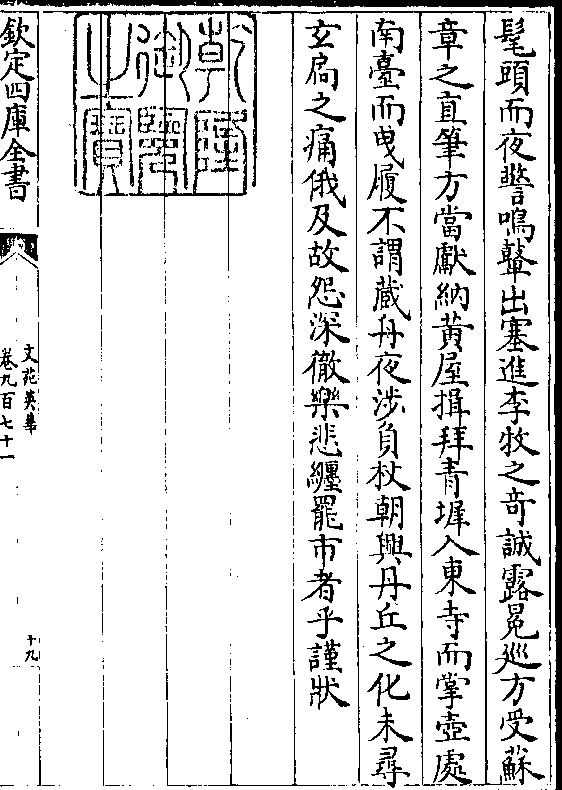 髦頭而夜警鳴鼙出塞進李牧之奇誠露冕巡方受蘇
章之直筆方當獻納黄屋揖拜青墀入東寺而掌壺處
南臺而曳履不謂蔵舟夜渉負杖朝興丹丘之化未尋
玄扃之痛俄及故怨深徹樂悲纏罷市者乎謹狀
乾隆御覽之寶
欽定四庫全書
文苑英華
卷九百七十一
十九